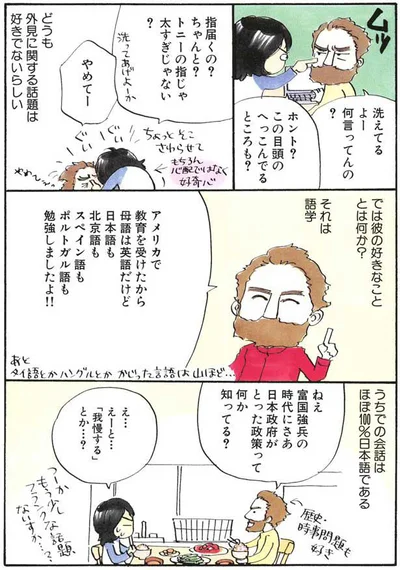 ムッ
洗えてる
よー
何言ってんの
?
ホント?
この目頭の
へっこんでる
ところも?
指届くの?
ちゃんと?
トニーの指じゃ
太すぎじゃない
?
洗ってあげよーか
やめてー
ちょっとそこ
さわらせて
もちろん
心配ではなく
好奇心
ぐい
ぐい
どうも
外見に関する話題は
好きでないらしい
では彼の好きなこと
とは何か?
それは
語学
アメリカで
教育を受けたから
母語は英語だけど
日本語も
北京語も
スペイン語も
ポルトガル語も
勉強しましたよ!!
あと
タイ語とかハングルとか かじった言語は山ほど…
うちでの会話は
ほぼ100%日本語である
ねえ
富国強兵の
時代にさあ
日本政府が
とった政策って
何か
知ってる?
歴史
時事問題も
好き
え…
えーと…
「我慢する」
とか…?
つーか
もう少し
フランクな
話題
ないすか…?